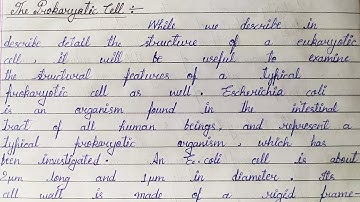 The Prokaryotic Cell :-
While we describe in
describe detail the structure of a eukaryotic
cell, it will be useful to examine
the structural features of a typical
prokaryotic cell as well. Escherichia coli
is an organism found in the intestinal
tract of all human beings, and represent a
typical prokaryotic organism, which has
been investigated. An E. coli cell is about
2μm long and 1μm in diameter. Its
cell wall is made of a rigid frame-